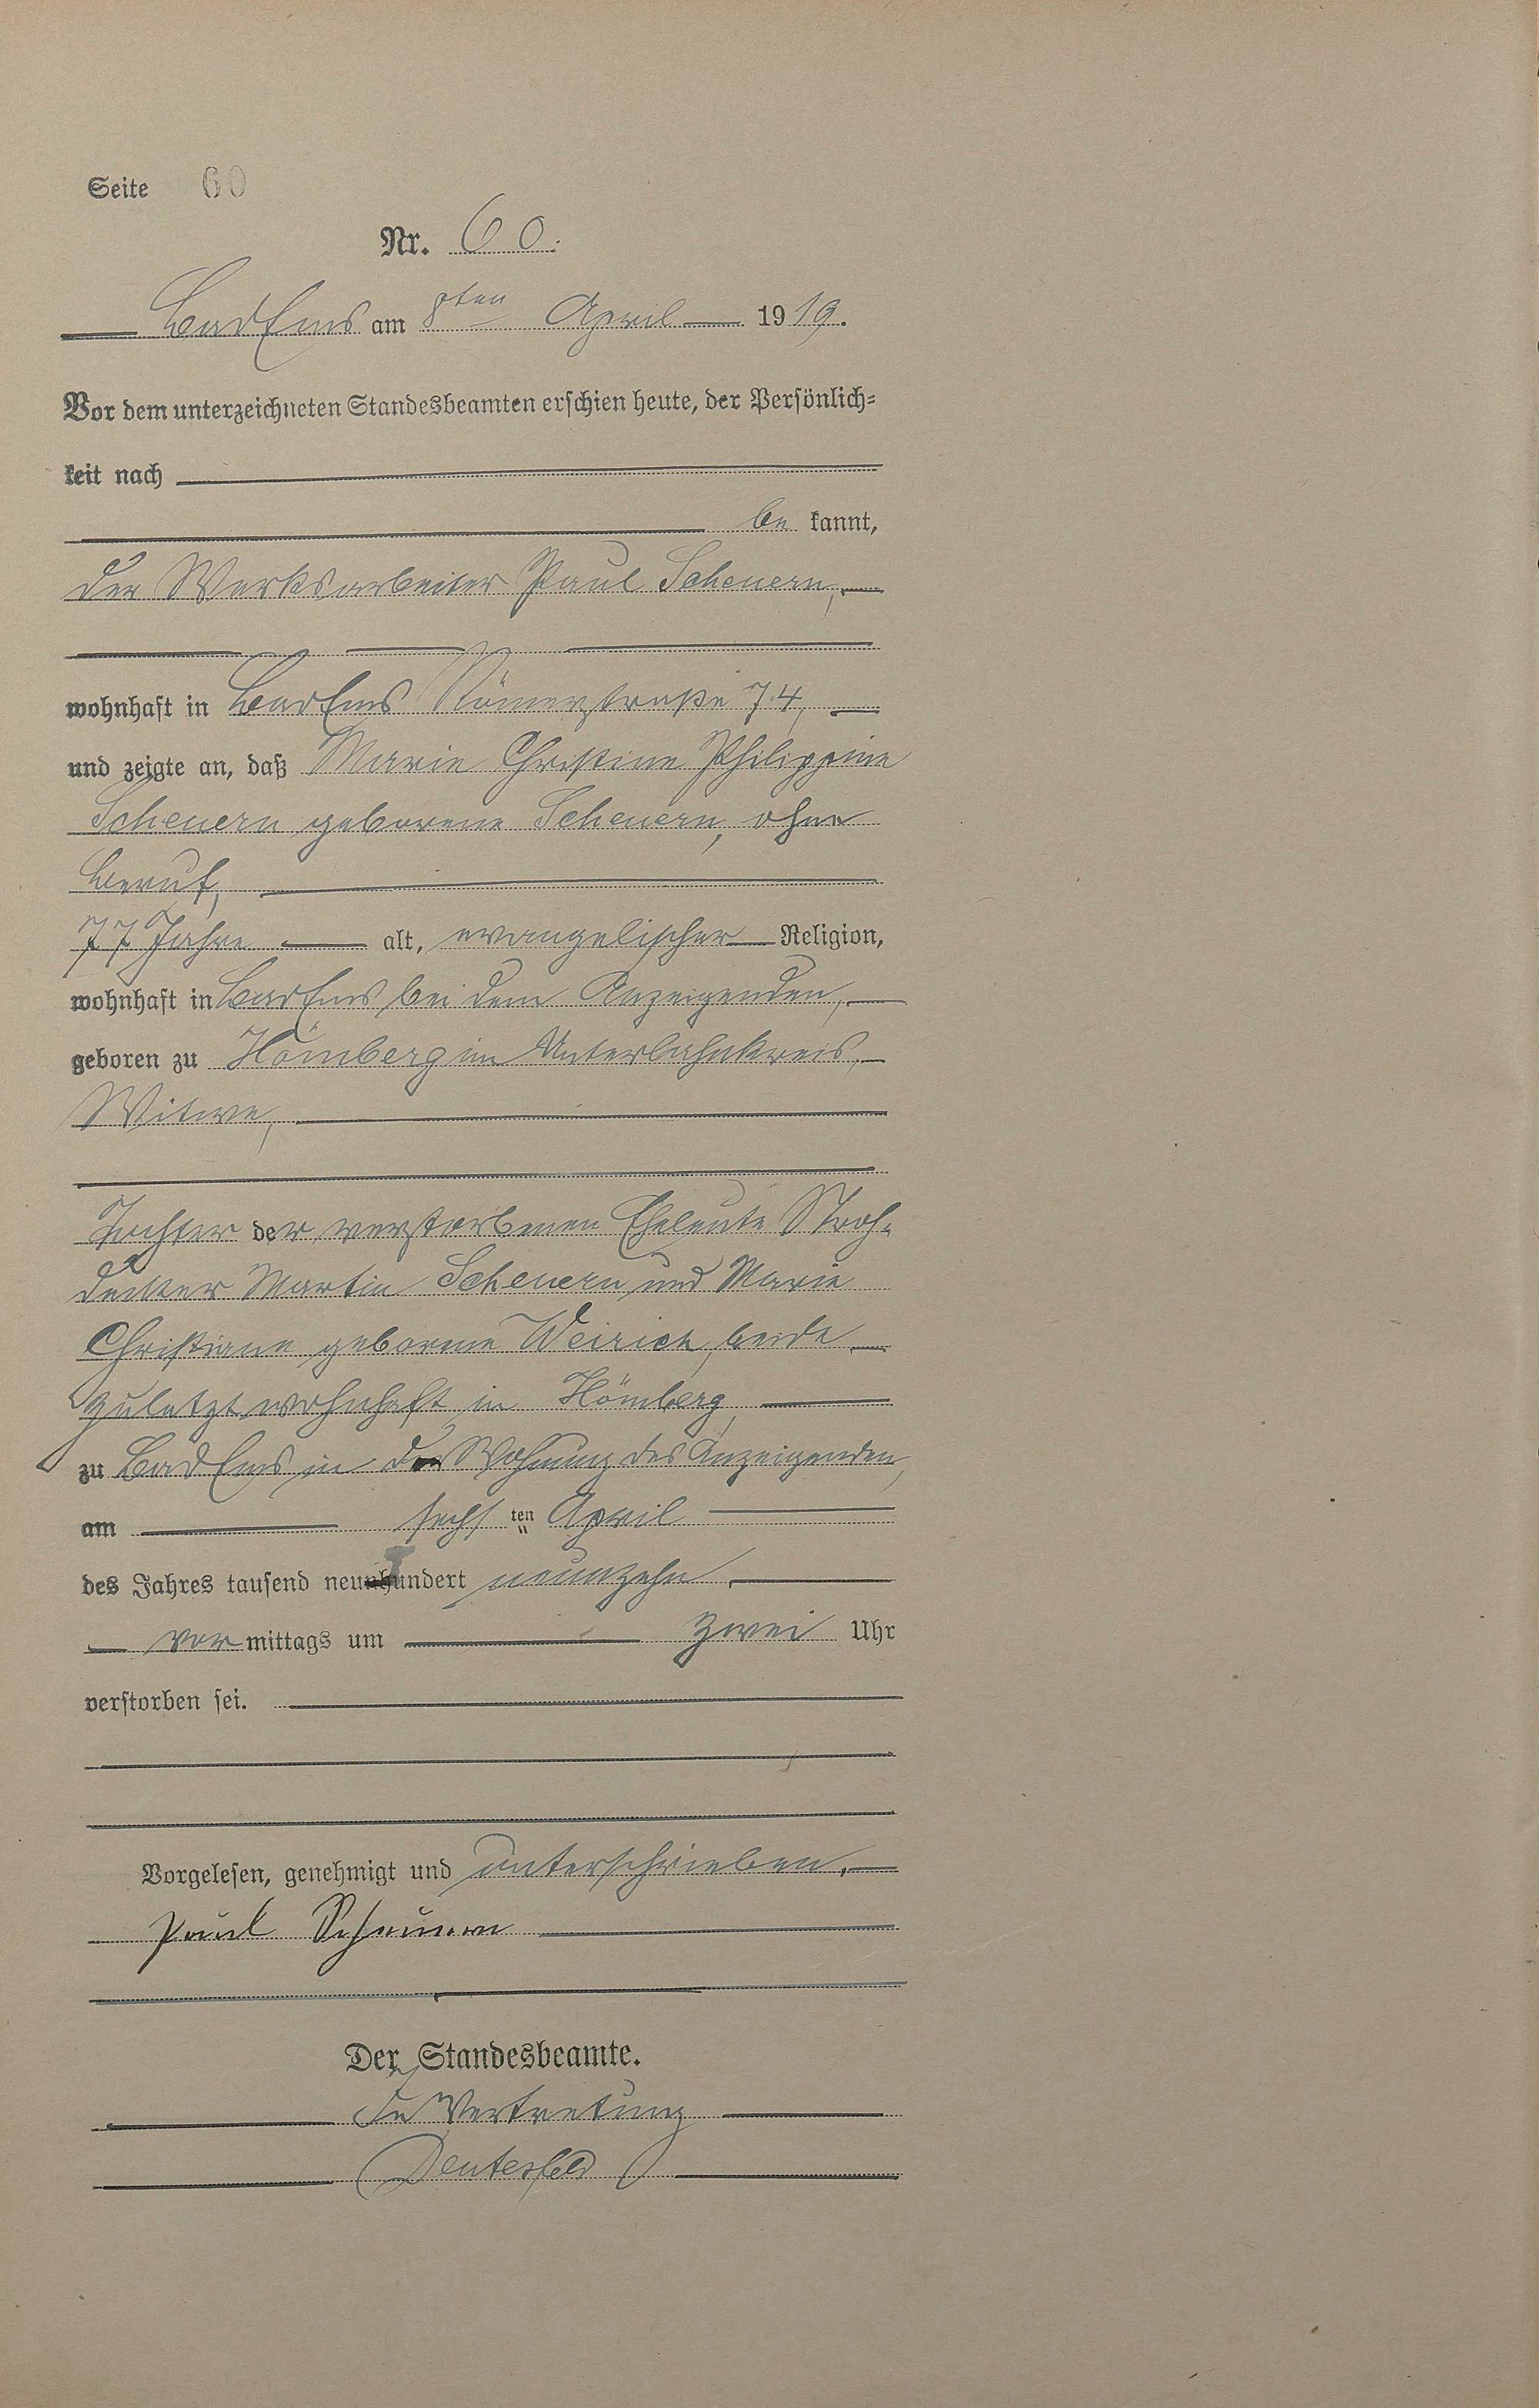 Seite 60
Nr. 60.
Bad Ems am 8ten April 1919.
Vor dem unterzeichneten Standesbeamten erschien heute, der Persönlich=
keit nach
be kannt,
der Werksarbeiter Paul Scheuern,
wohnhaft in Bad Ems Römerstraße 74,
und zeigte an, daß Marie Christine Philippine
Scheuern geborene Scheuern, ohne
Beruf,
77 Jahre alt, evangelischer Religion,
wohnhaft in Bad Ems bei dem Anzeigenden,
geboren zu Hömberg im Unterlahnkreis,
Witwe,
Tochter der verstorbenen Eheleute Stroh-
decker Martin Scheuern und Marie
Christiane geborene Weirich, beide
zuletzt wohnhaft in Hömberg,
zu Bad Ems in der Wohnung des Anzeigenden,
am sechs ten April
des Jahres tausend neunhundert neunzehn
vor mittags um zwei Uhr
verstorben sei.
Vorgelesen, genehmigt und unterschrieben.
Paul Scheuern
Der Standesbeamte.
In Vertretung